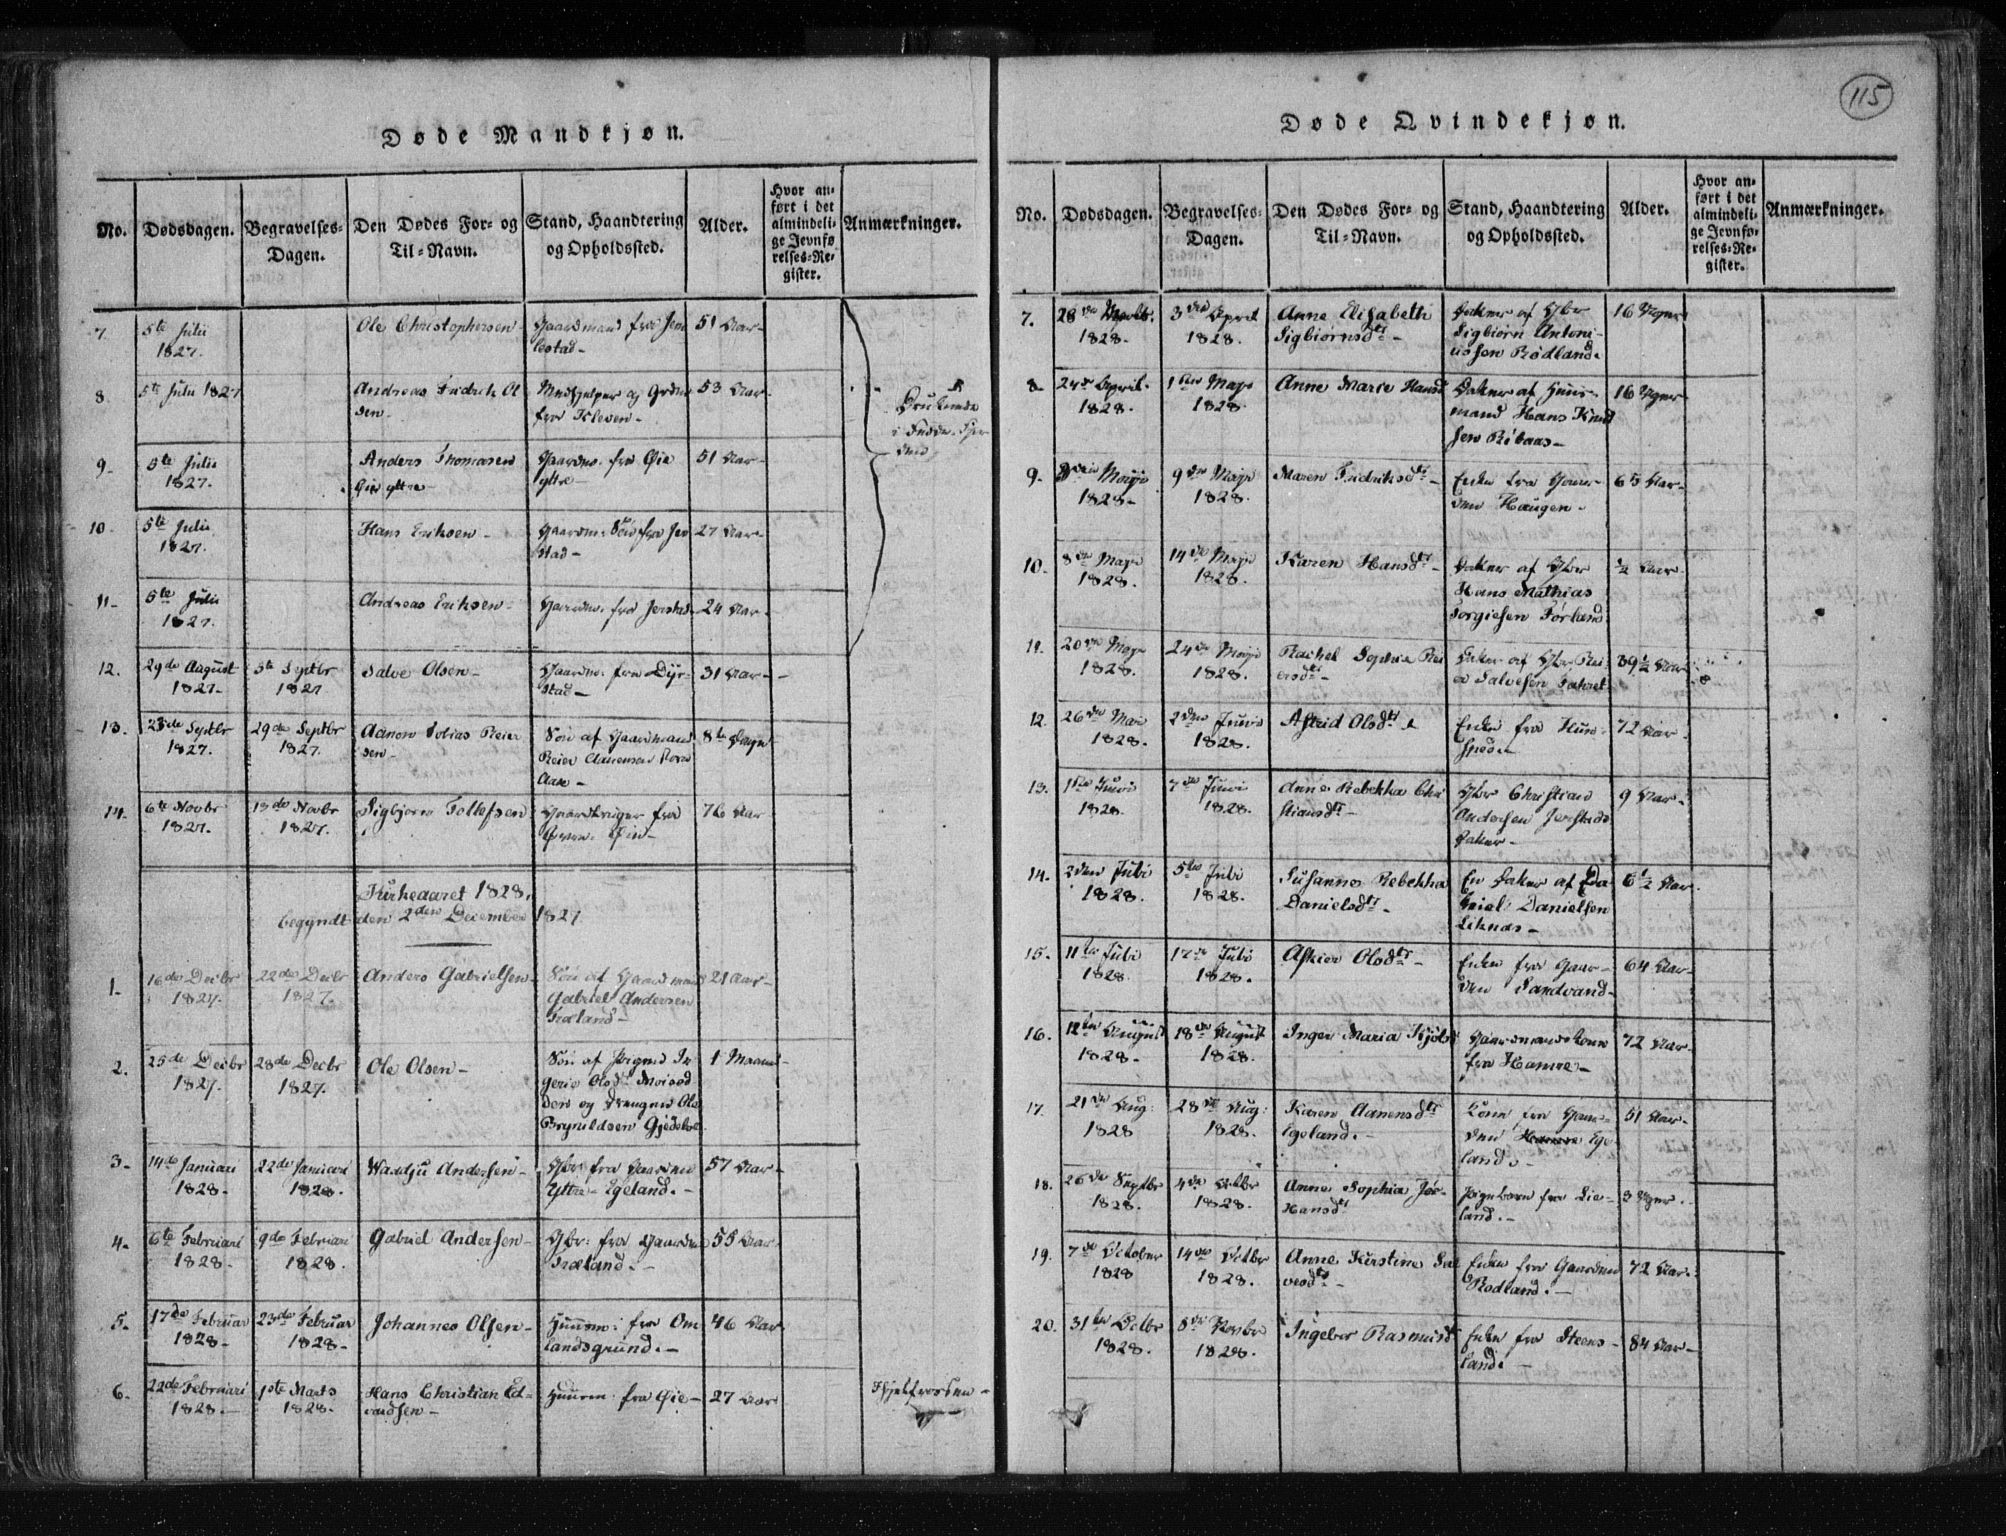 115
Døde Mandkjøn.
No. Dødsdagen. Begravelses-Dagen. Den Dødes For- og Til-Navn. Stand, Haandtering og Opholdssted. Alder. Hvor anført i det almindelige Jevnførelses-Register. Anmærkninger.
7. 5te Julii 1827. Ole Christophersen - Gaardmand fra 51 Aar -
8. 5te Julii 1827 Andreas Fridrich Olsen - Medhjelper og fra Kleven - 53 Aar -
Druknede i Fedde-Fjorden
9. 5te Julii 1827. Anders Thomasen Øie yttre - Gaardm. fra Øie yttre - 51 Aar -
10. 5te Julii 1827. Hans Eriksen - Gaardm. Søn fra Jerstad - 27 Aar -
11. 5te Julii 1827. Andreas Eriksen - Gaardm. fra Jerstad - 24 Aar -
12. 29de August 1827. 5te Septbr 1827 Salve Olsen - Gaardm. fra Dyrstad - 31 Aar -
13. 23de Septbr 1827. 29de Septbr 1827. Aanon Tobias Reiersen - Søn af Gaardmand Reier Aanensen Aase - 8te Dage
14. 6te Novbr 1827. 13de Novbr 1827. Sigbjørn Tollefsen Gaardbruger fra Øie - 76 Aar
Kirkeaaret 1828.
begyndt den 2den December 1827.
1. 16de Decbr 1827. 22de Decbr 1827. Anders Gabrielsen - Søn af Gaardmand Gabriel Andersen Træland - 21 Aar -
2. 25de Decbr 1827. 28de Decbr 1827. Ole Olsen - Søn af Pigen Olsdtr og Drengen Ole Brynildsen 1 Maaned -
3. 14de Januari 1828. 22de Januari 1828. Waadju Andersen - Gbr. fra Gaarden Yttre - Egeland. - 57 Aar -
4. 6te Februari 1828. 9de Februari 1828. Gabriel Andersen - Gbr: fra Gaarden Træland. - 55 Aar
5. 17de Februar 1828. 23de Februar 1828. Johannes Olsen - Huusm: fra Omlandsgrund. - 46 Aar
6. 22de Februari 1828. - 1ste Marts 1828. Hans Christian Edvardsen - Huusm. fra Øie - 27 Aar Ihjelfrossen -
Døde Qvindekjøn.
No. Dødsdagen. Begravelses-Dagen. Den Dødes For- og Til-Navn. Stand, Haandtering og Opholdssted. Alder. Hvor anført i det almindelige Jevnførelses-Register. Anmærkninger.
7. 28de Marts. 1828. 3die April 1828. Anne Elisabeth Sigbiørnsdtr - Datter af Gbr Sigbiørn Antoniussen Rødland. 16 Uger
8. April. 1828. 1ste Maji 1828. Anne Marie Hansd Datter af Huusmand Hans Knudsen Ribaas - 16 Uger
9. Maji 1828 - 9de Maji 1828. Maren Fridriksdtr - Enke fra Gaarden Haugen - 65 Aar -
10. 8de Maji 1828. 14de Maji 1828. Karen Hansdtr - Datter af Gbr Hans Mathias Torgiesen Førland ½ Aar.
11. 20de Maji 1828. 24de Maji 1828. Rachel Sophia Reiersdtr - Datter af Gbr Reier Salvesen 39½ Aar
12. 26de Mai 1828. 2den Junii 1828. Astrid Olsdtr Enke fra 72 Aar -
13. 1ste Juni 1828. 7de Juni 1828. Anne Rebekka Christiansdtr - Gbr Christian Andersen Jerstads Datter - 9 Aar -
14. 2den Juli 1828. 5te Juli 1828. Susanne Rebekka Danielsdtr - En Datter af Daniel Danielsen Liknes - 6½ Aar.
15. 11te Juli 1828. 17de Juli 1828. Askier Olsdtr - Enke fra Gaarden Sandvand - 64 Aar -
16. 12te August 1828. 18de August 1828. Inger Maria Gaardmandskone fra Hamre - 72 Aar -
17. 21de Aug: 1828 28de Aug: 1828. Karen Aanensdtr Egeland. - Kone fra Gaarden Hamre Egeland. 51 Aar -
18. 26de Septbr 1828. 4de Octbr 1828. Anne Sophia Jørhansdtr Pigebarn fra Lieland. - 3 Uger.
19. 7de October 1828 14de Octbr 1828. Anne Kirstine Salvesdtr - Enke fra Gaarden Rødland. - 72 Aar.
20. 31te Octbr 1828. 8de Novbr 1828. Ingebor Rasmusd Enke fra Steensland. - 84 Aar -